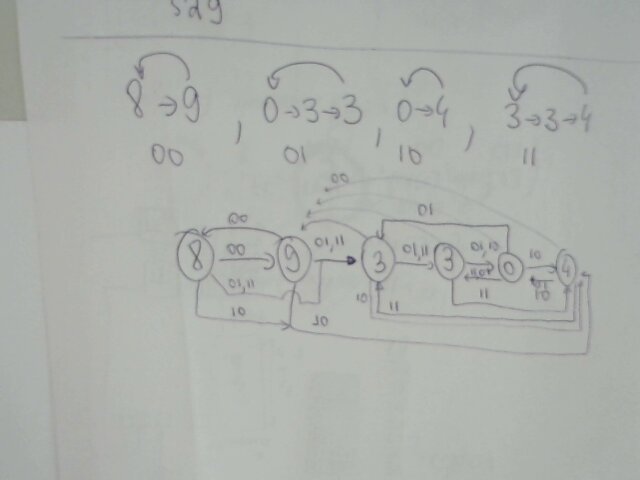 529
8→9, 0→3→3, 0→4, 3→3→4
00 01 10 11
00
00 01
8 00 9 01,11 3 01,11 3 01,10 0 10 4
01,11 10
10 10 11 11